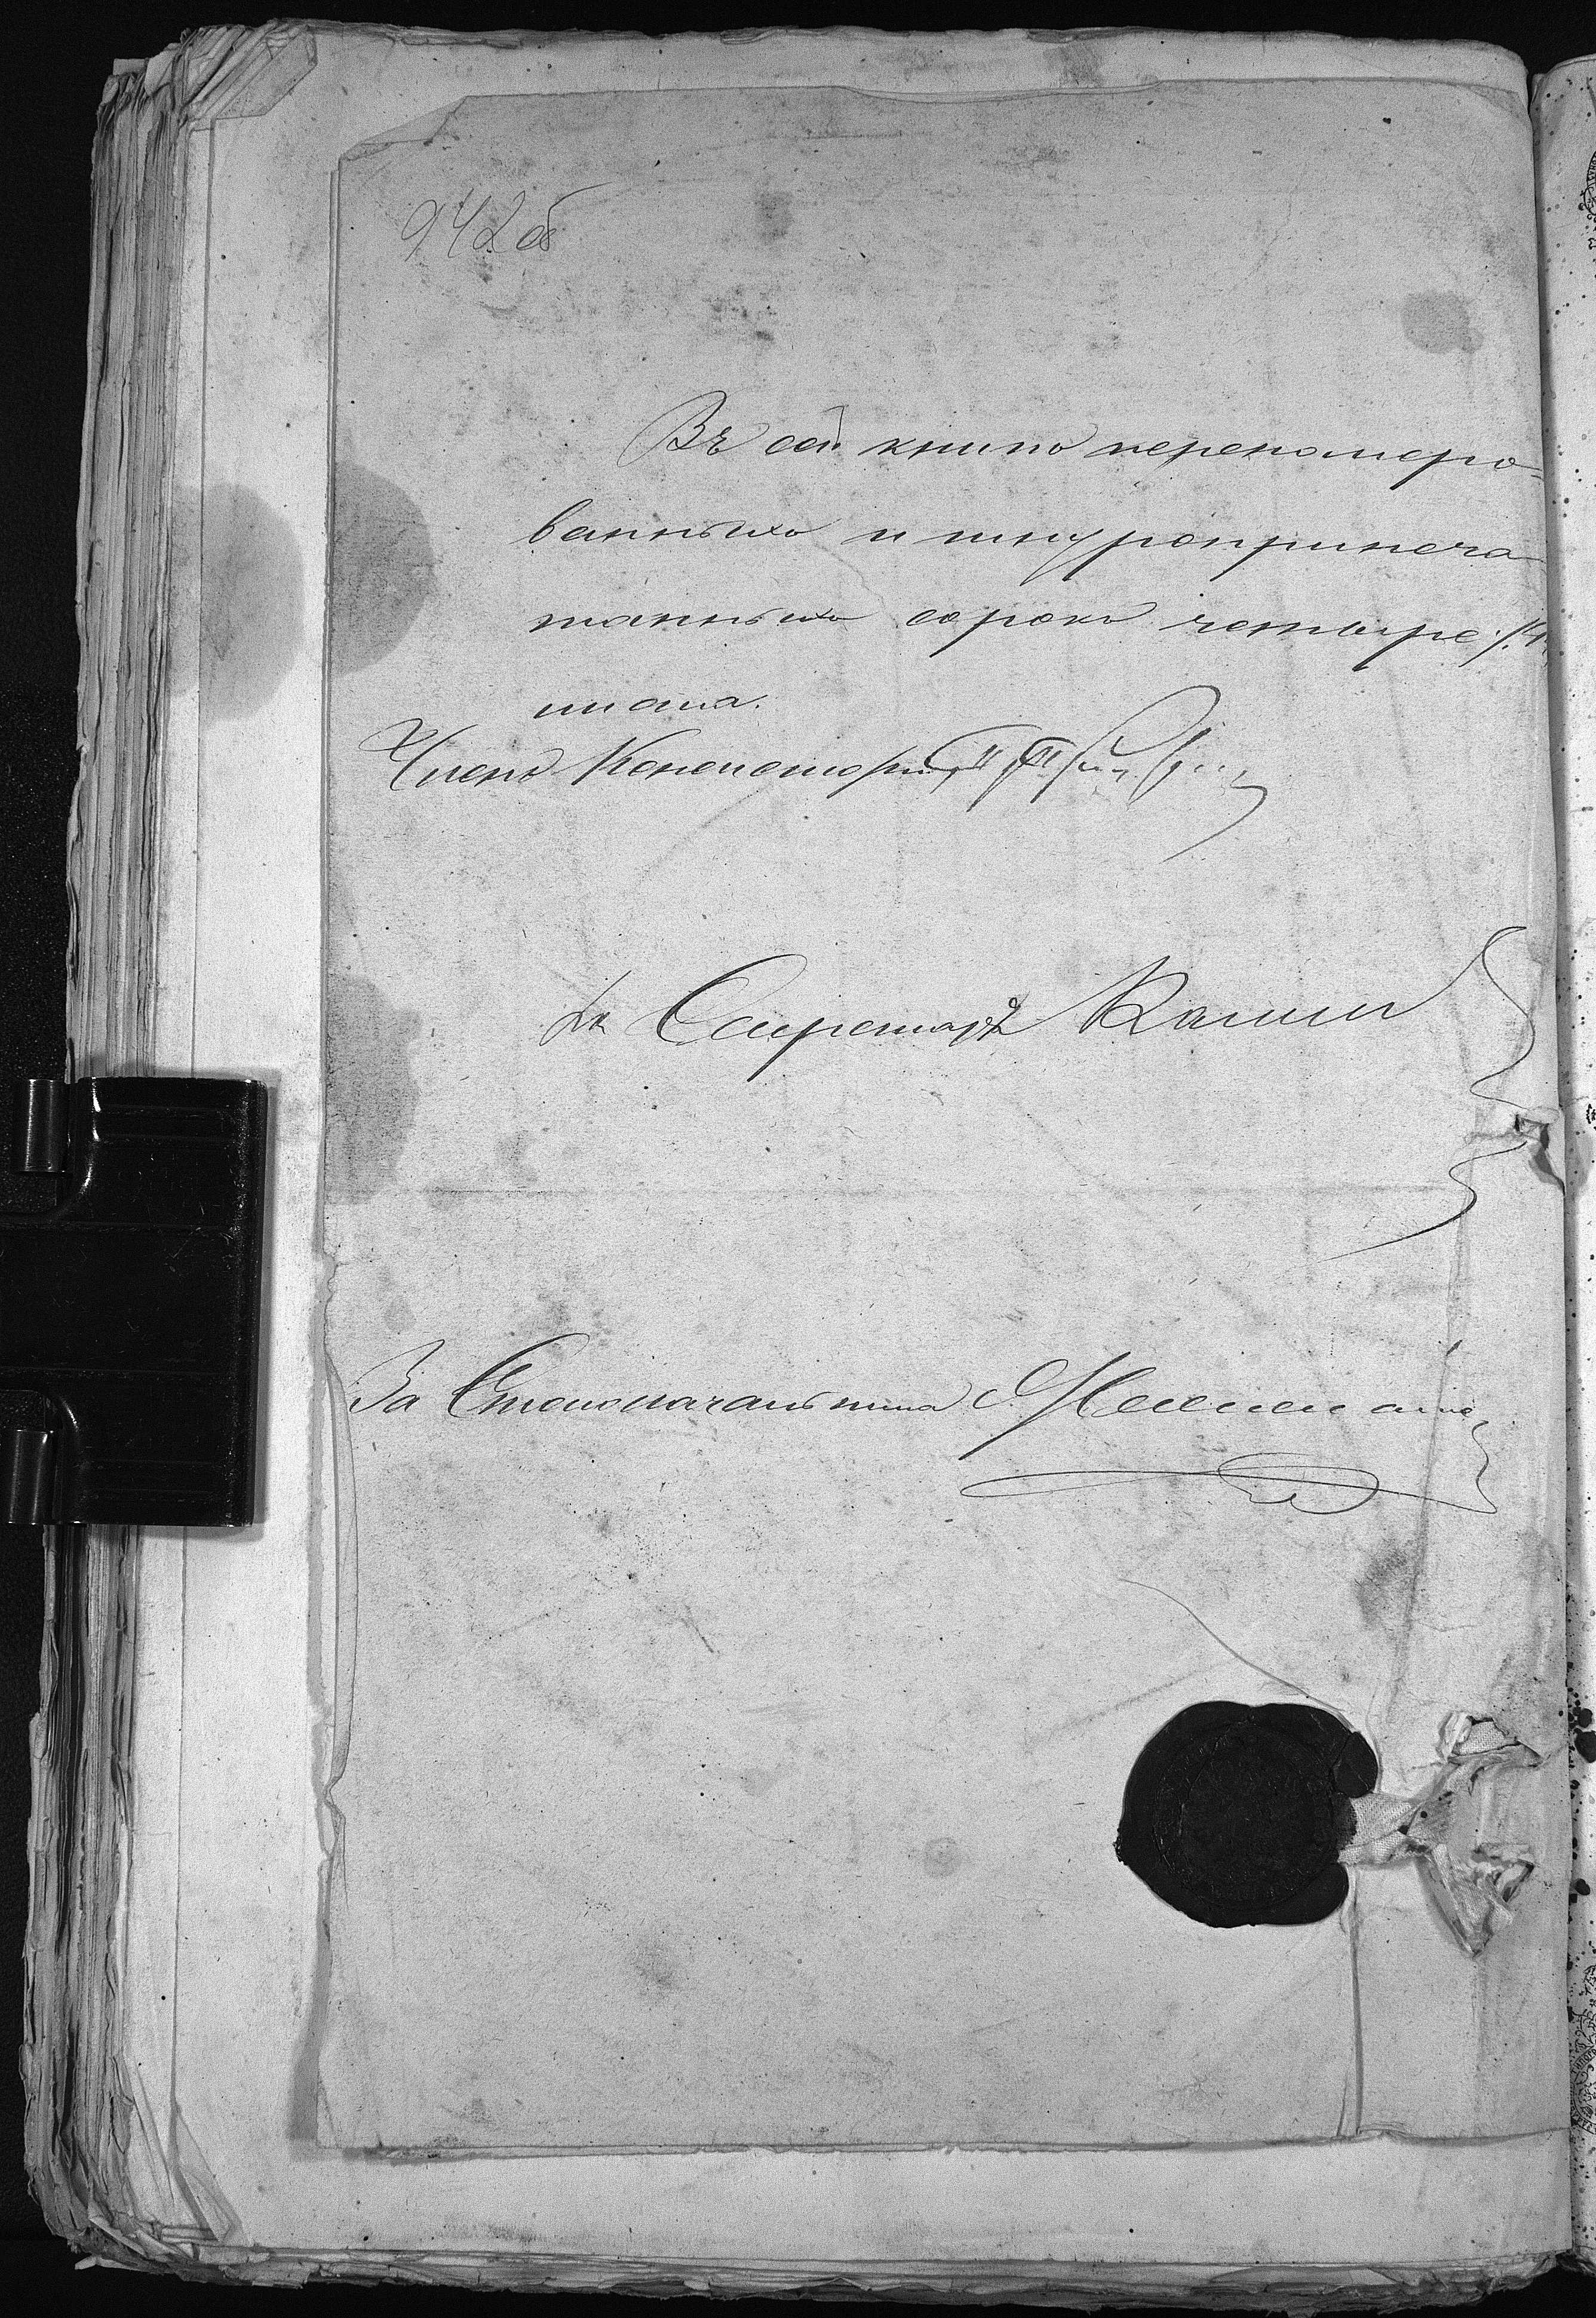 942об
Въ сей книгѣ перенумеро-
ванныхъ и шнуроприпеча
танныхъ сорокъ четыре /44
листа.
Членъ Консисторіи
Секретарь
За Столоначальника